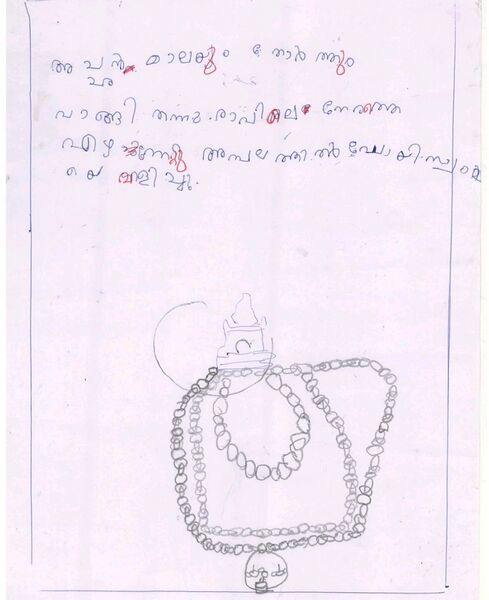 അച്ചൻ മാലയും തോർത്തും
വാങ്ങി തന്നു. രാവിലെ നേരത്തെ
എഴുന്നേറ്റു അമ്പലത്തിൽ പോയി. സ്വാമിയെ വിളിച്ചു.